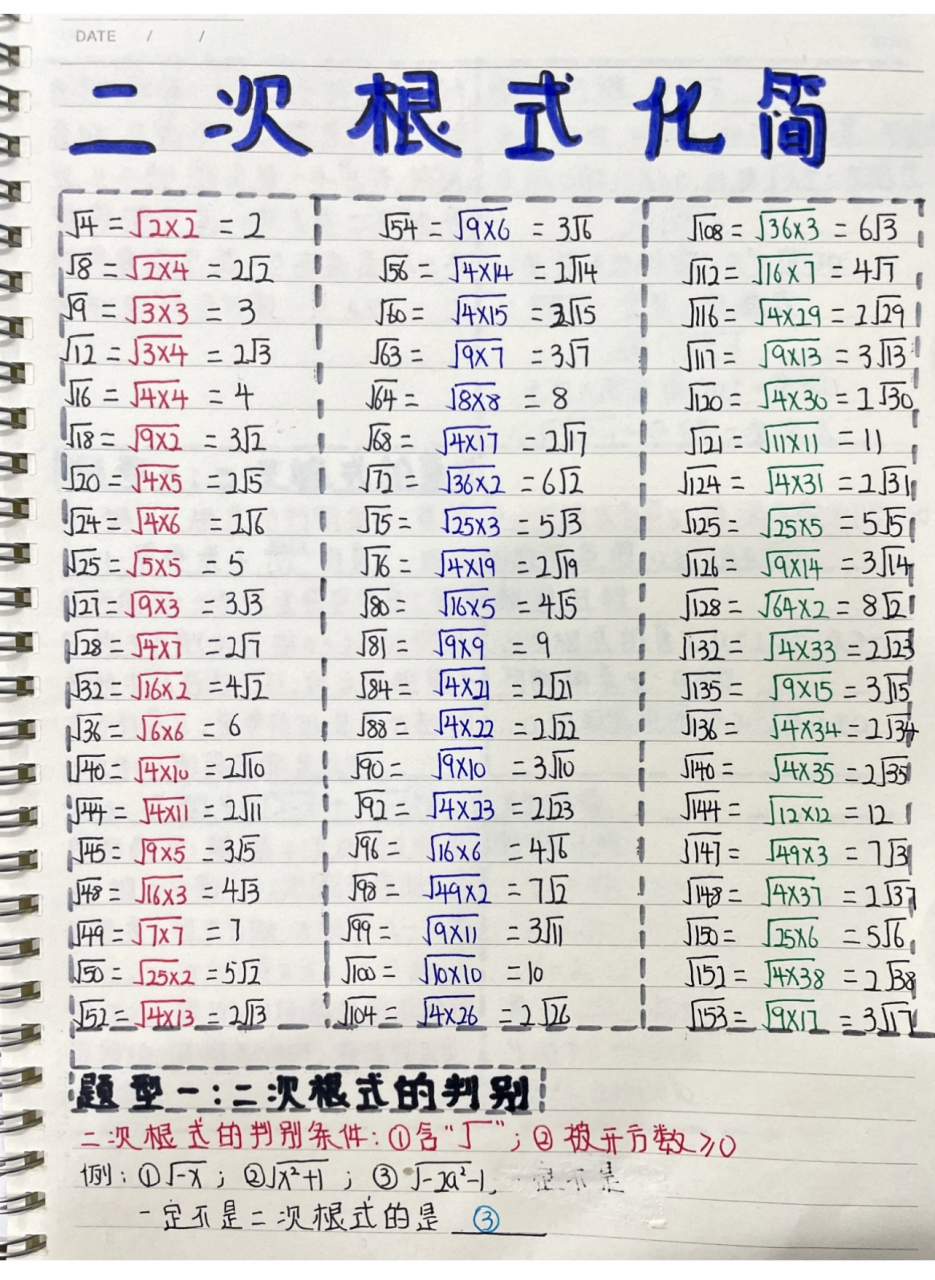 DATE / /
二次根式化简
√4 = √2×2 = 2
√8 = √2×4 = 2√2
√9 = √3×3 = 3
√12 = √3×4 = 2√3
√16 = √4×4 = 4
√18 = √9×2 = 3√2
√20 = √4×5 = 2√5
√24 = √4×6 = 2√6
√25 = √5×5 = 5
√27 = √9×3 = 3√3
√28 = √4×7 = 2√7
√32 = √16×2 = 4√2
√36 = √6×6 = 6
√40 = √4×10 = 2√10
√44 = √4×11 = 2√11
√45 = √9×5 = 3√5
√48 = √16×3 = 4√3
√49 = √7×7 = 7
√50 = √25×2 = 5√2
√52 = √4×13 = 2√13
√54 = √9×6 = 3√6
√56 = √4×14 = 2√14
√60 = √4×15 = 2√15
√63 = √9×7 = 3√7
√64 = √8×8 = 8
√68 = √4×17 = 2√17
√72 = √36×2 = 6√2
√75 = √25×3 = 5√3
√76 = √4×19 = 2√19
√80 = √16×5 = 4√5
√81 = √9×9 = 9
√84 = √4×21 = 2√21
√88 = √4×22 = 2√22
√90 = √9×10 = 3√10
√92 = √4×23 = 2√23
√96 = √16×6 = 4√6
√98 = √49×2 = 7√2
√99 = √9×11 = 3√11
√100 = √10×10 = 10
√104 = √4×26 = 2√26
√108 = √36×3 = 6√3
√112 = √16×7 = 4√7
√116 = √4×29 = 2√29
√117 = √9×13 = 3√13
√120 = √4×30 = 2√30
√121 = √11×11 = 11
√124 = √4×31 = 2√31
√125 = √25×5 = 5√5
√126 = √9×14 = 3√14
√128 = √64×2 = 8√2
√132 = √4×33 = 2√23
√135 = √9×15 = 3√15
√136 = √4×34 = 2√34
√140 = √4×35 = 2√35
√144 = √12×12 = 12
√147 = √49×3 = 7√3
√148 = √4×37 = 2√37
√150 = √25×6 = 5√6
√152 = √4×38 = 2√38
√153 = √9×17 = 3√17
题型一:二次根式的判别
二次根式的判别条件:①含“√ ”;②被开方数≥0
例:①√-x;②√x²+1;③√-2a²-1,
一定不是二次根式的是 ③